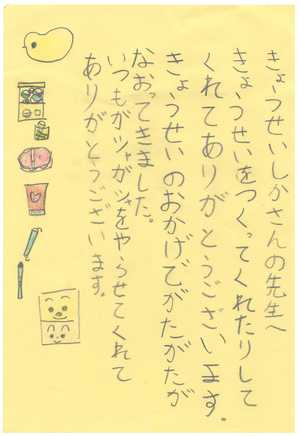 きょうせいしかさんの先生へ
きょうせいをつくってくれたりして
くれてありがとうございます。
きょうせいのおかげでがたがたが
なおってきました。
いつもガシャガシャをやらせてくれて
ありがとうございます。